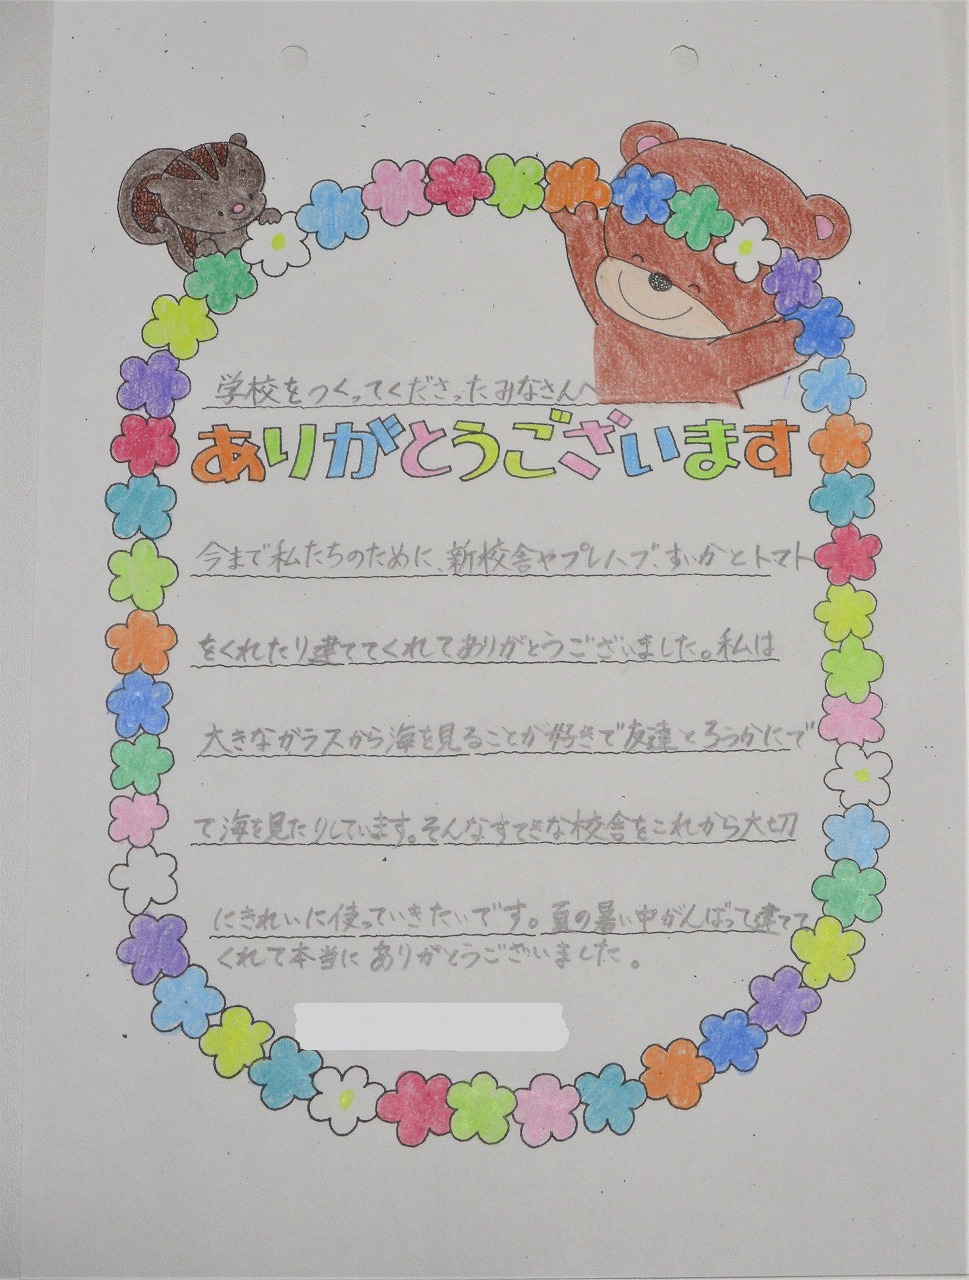 学校をつくってくださったみなさんへ
ありがとうございます
今まで私たちのために、新校舎やプレハブ、すいかとトマト
をくれたり建ててくれてありがとうございました。私は
大きなガラスから海を見ることが好きで友達とろうかにで
て海を見たりしています。そんなすてきな校舎をこれから大切
にきれいに使っていきたいです。夏の暑い中がんばって建てて
くれて本当にありがとうございました。